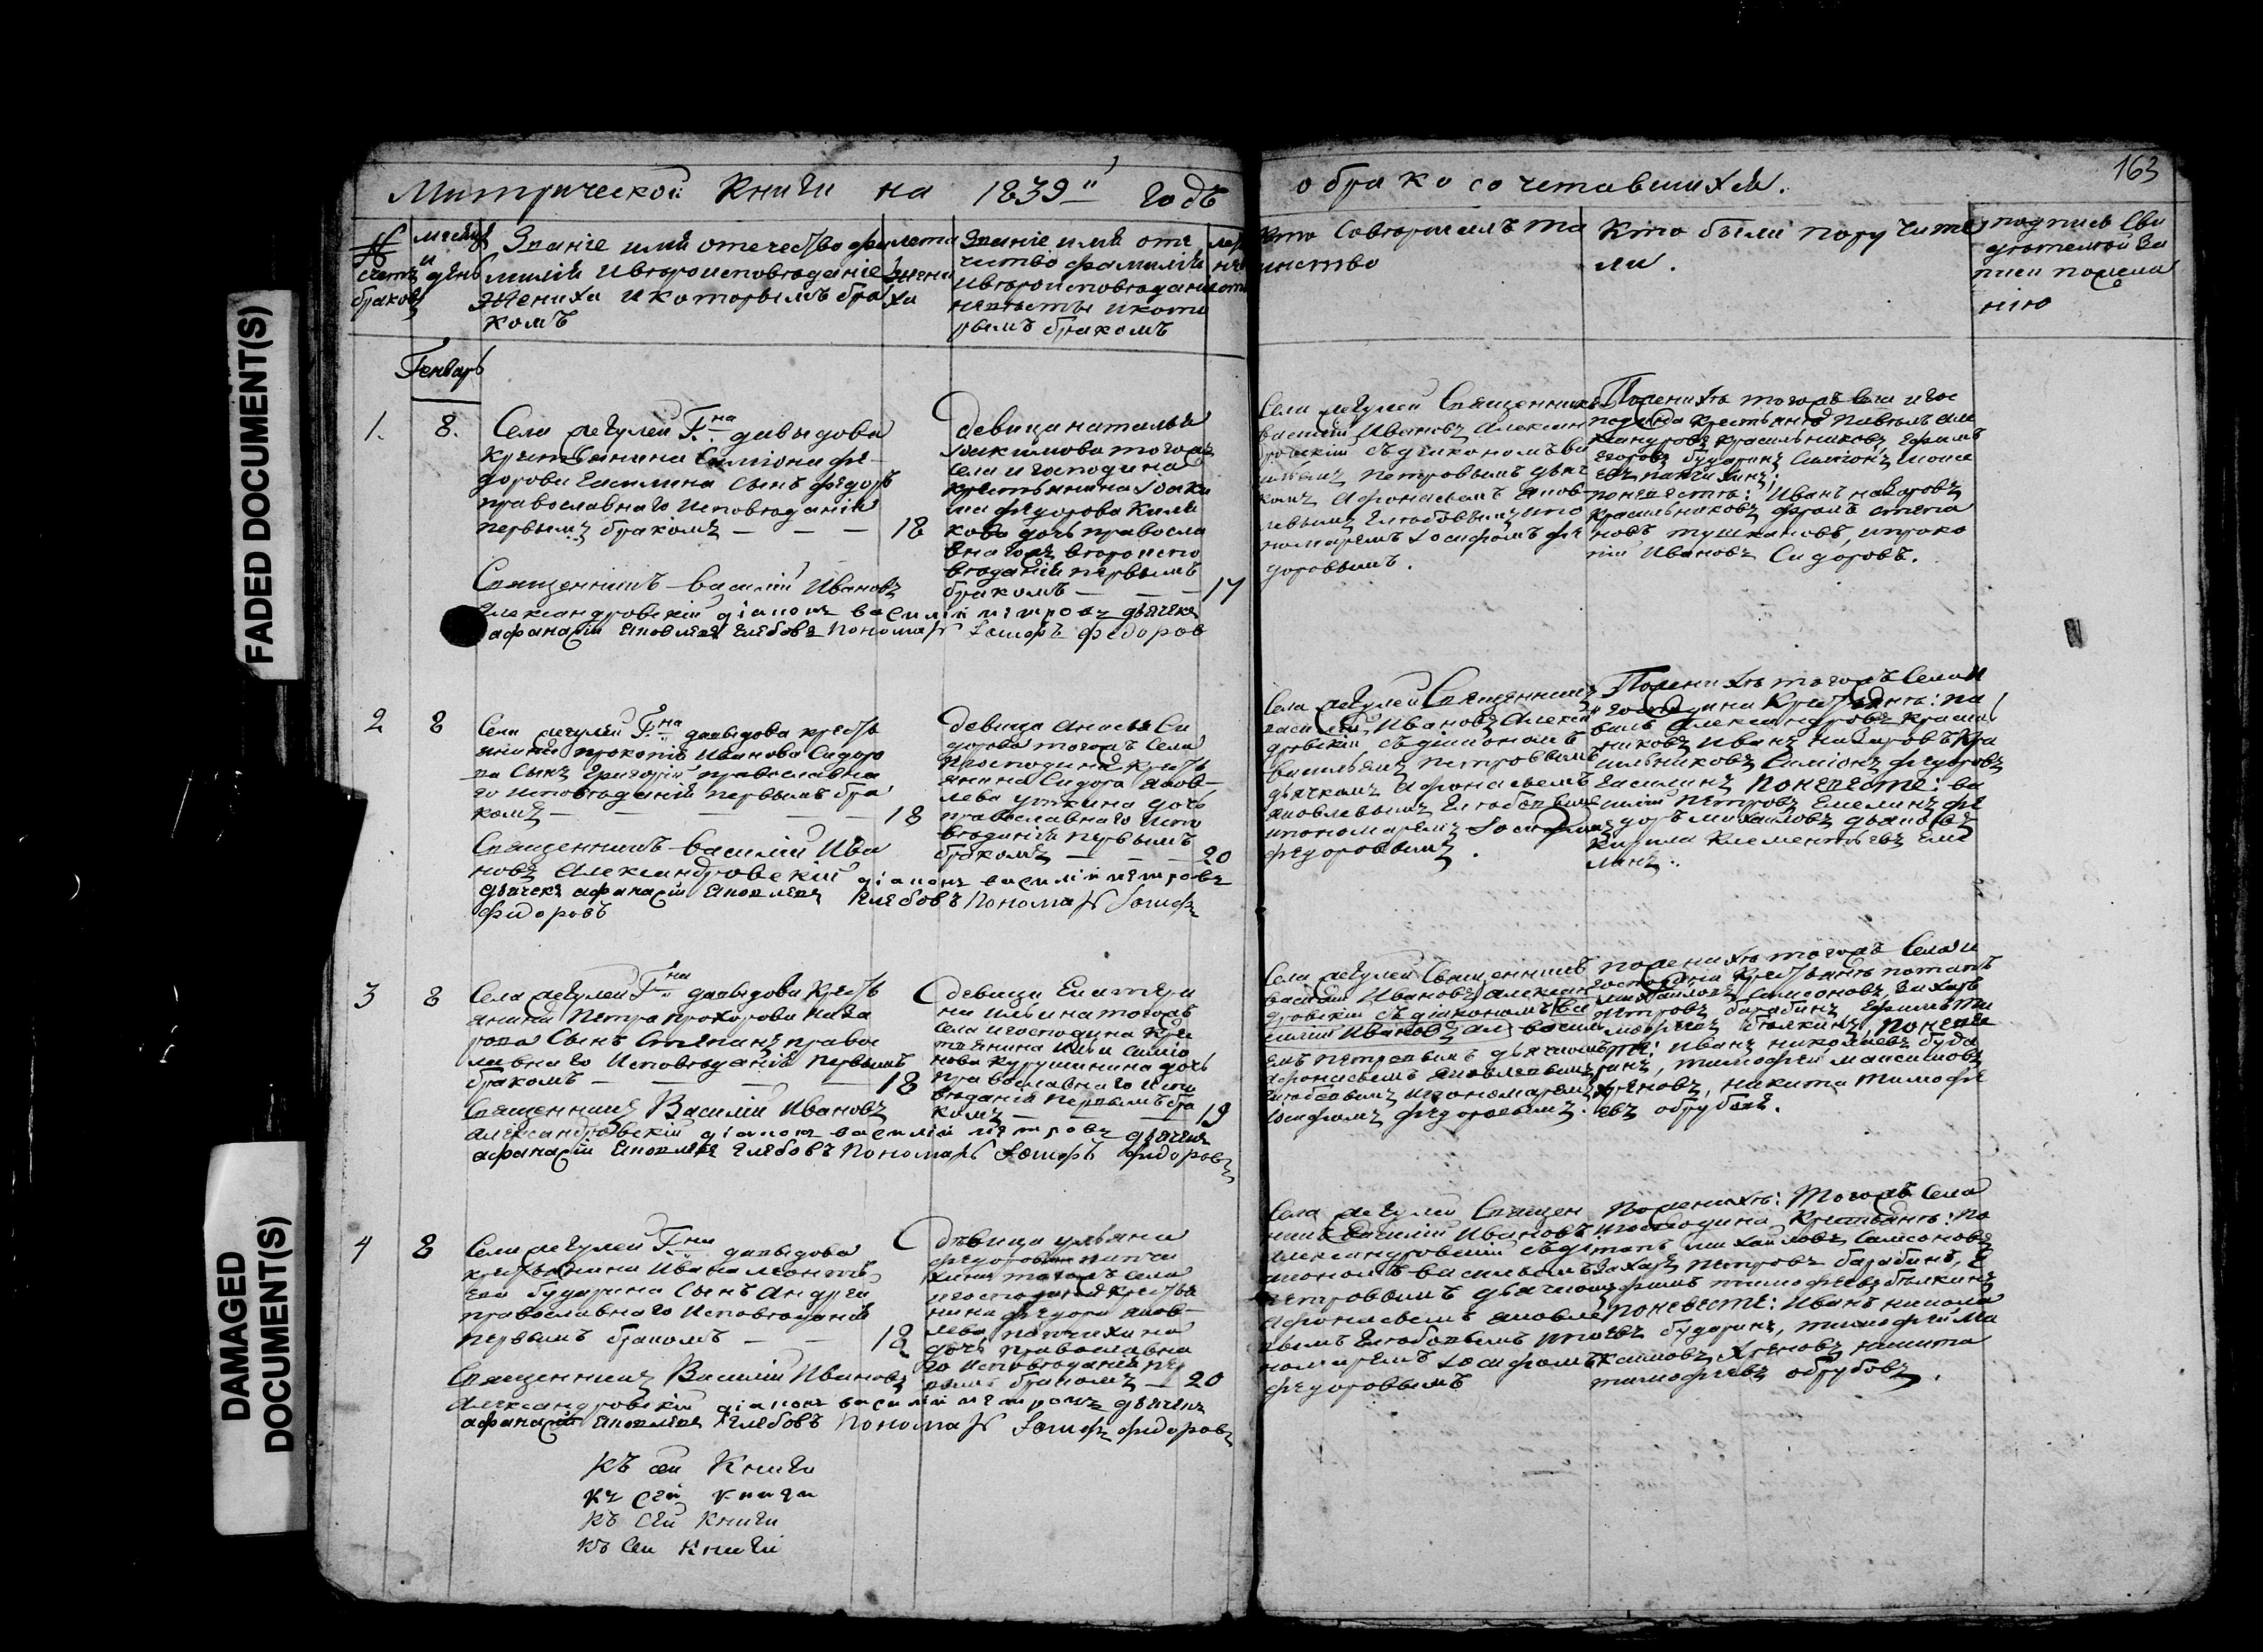 FADED DOCUMENT(S)
DAMAGED
DOCUMENT(S)
Митрической Книги на 1839 годъ
о бракосочетавшихся.
163
№
счетъ
браковъ
месяцъ
и
день
Званіе имя отечество фа
милія и втроисповѣданіе
жениха и которымъ бра
комъ
лета
жени
ха
Званіе имя оте
чество фамилія
невѣсты и кото
рымъ бракомъ
Кто совершилъ та
инство
Кто были поручите
ли.
подпись сви
нію
Генварь
1.
8.
Села Г.на давыдова
крестьянина Симіона фе
дорова Гасилина сынъ федоръ
православнаго исповѣданія
первымъ бракомъ — — — 18
Священникъ василій Ивановъ
Александровскій діаконъ василій петровъ дьячекъ
афанасій яковлевъ глебовъ пономарь Іосифъ федоров
девица наталья
Іоакимова тогожъ
села и господина
крестьянина Іоаки
ма федорова
дочь правосла
первымъ
бракомъ — — 17
Села Священникъ
василий Ивановъ Алексан
дровский съ діакономъ ва
сильемъ петровымъ дьяч
комъ Афонасьемъ яков
левымъ Глебовымъ и по
номаремъ Іосифомъ фе
доровымъ.
По женихѣ тогожъ села и гос
подина крестьяне павелъ але
ксандровъ красильниковъ, Ефимъ
егоровъ бударинъ Симіонъ
по невестѣ: Иванъ назаровъ
красильниковъ степа
новъ, и проко
пій Ивановъ Сидоровъ.
2
8
Села Г.на давыдова кресть
янина прокопія Иванова Сидоро
ва сынъ григорій православна
го исповѣданія первымъ бра
комъ — — — 18
Священникъ василій Ива
новъ Александровскій діаконъ василій петровъ
дьячекъ афанасій яковлевъ глебовъ пономарь Іосифъ
федоровъ
девица Анисья Си
дорова тогожъ села
и господина кресть
янина Сидора яков
лева уткина дочь
православнаго испо
вѣданія первымъ
бракомъ — — 20
Села Священникъ
василий Ивановъ Алексан
дровскій съ діакономъ
васильемъ петровымъ
дьячкомъ Афонасьемъ
яковлевымъ Глебовымъ
и пономаремъ Іосифомъ
федоровымъ.
По женихѣ тогожъ села и
господина крестьяне: па
велъ александровъ красиль
никовъ Иванъ назаровъ кра
сильниковъ Симіонъ федоровъ
Гасилинъ по невестѣ: ва
силій петровъ Емелинъ фе
доръ михаиловъ
кирила климентьевъ Еме
линъ.
3
8
Села Г.на давыдова кресть
янина петра прохорова наза
рова сынъ степанъ право
славнаго исповѣданія первымъ
бракомъ — — — 18
Священникъ Василій Ивановъ
александровскій діаконъ василій петровъ дьячекъ
афанасій яковлевъ глебовъ пономарь Іосифъ федоровъ
девица Екатери
на Ильина тогожъ
села и господина кре
стьянина Ильи симіо
нова дочь
православнаго испо
вѣданія первымъ бра
комъ — — 19
Села Священникъ
василій Ивановъ алексан
дровскій съ діакономъ ва
силій Ивановъ ал василь
емъ петровымъ дьячкомъ
афонасьемъ яковлевымъ
глебовымъ и пономаремъ
Іосифомъ федоровымъ.
по женихѣ тогожъ села и
господина крестьяне потапъ
михаиловъ самсоновъ, захаръ
петровъ барабинъ, Ефимъ ти
мофеевъ, по невѣ
стѣ: Иванъ николаевъ буда
ринъ, тимофей максимовъ
хреновъ, никита тимофе
евъ обрубовъ.
4
8
Села Г.на давыдова
крестьянина Ивана леонтье
ва бударина сынъ Андрей
православнаго исповѣданія
первымъ бракомъ — — 18
Священникъ Василій Ивановъ
Александровскій діаконъ василій петровъ дьячекъ
афанасій яковлевъ глебовъ пономарь Іосифъ федоровъ
девица ульяна
тогожъ села
и господина крестья
нина федора яков
лева
дочь православна
го исповѣданія пер
вымъ бракомъ — 20
Села Священ
никъ Василій Ивановъ
Александровскій съ ді
акономъ васильемъ
петровымъ дьячкомъ
Афонасьемъ яковле
вымъ Глебовымъ и по
номаремъ Іосифомъ
федоровымъ
По женихѣ: тогожъ села
и господина крестьяне: по
тапъ михаиловъ Самсоновъ
Захаръ петровъ барабинъ, Е
фимъ тимофеевъ
по невестѣ: Иванъ никола
евъ бударинъ, тимофей ма
ксимовъ хреновъ никита
тимофеевъ обрубовъ.
къ сей книги
къ сей книги
къ сей книги
къ сей книги